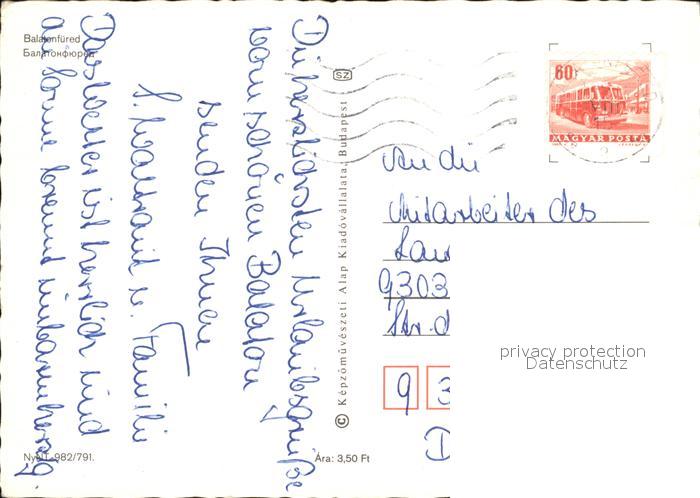 Balatonfüred
Балатонфюред
Die herzlichsten Urlaubsgrüße
vom schönen Balaton
senden Ihnen
Waltraut u. Familie
Das Wetter ist herrlich und
die Sonne brennt
Nyt. -982/791.
Ára: 3,50 Ft
SZ
© Képzőművészeti Alap Kiadóvállalata, Budapest
60f
MAGYAR POSTA
An die
Mitarbeiter des
9303
Str. d
9 3
D
privacy protection
Datenschutz